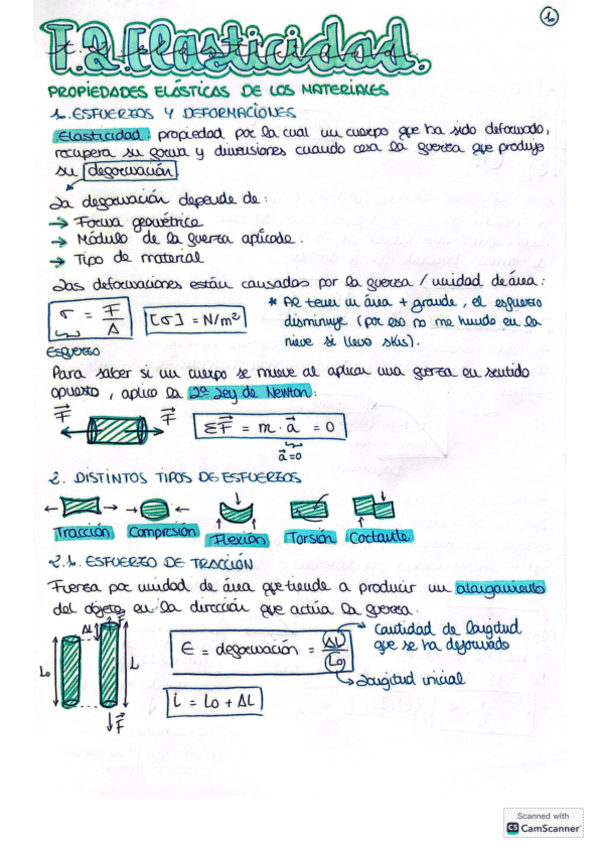 1
T.2. Elasticidad.
PROPIEDADES ELÁSTICAS DE LOS MATERIALES
1. ESFUERZOS Y DEFORMACIONES
Elasticidad: propiedad por la cual un cuerpo que ha sido deformado,
recupera su forma y dimensiones cuando cesa la fuerza que produjo
su deformación
La deformación depende de:
→ Forma geométrica
→ Módulo de la fuerza aplicada.
→ Tipo de material
Las deformaciones están causadas por la fuerza / unidad de área:
σ = F/A [σ] = N/m²
Esfuerzo
* Al tener un área + grande, el esfuerzo
disminuye (por eso no me hundo en la
nieve si llevo skis).
Para saber si un cuerpo se mueve al aplicar una fuerza en sentido
opuesto, aplico la 2ª Ley de Newton:
F F ΣF = m · a = 0
a = 0
2. DISTINTOS TIPOS DE ESFUERZOS
Tracción Compresión Flexión Torsión Cortante
2.1. ESFUERZO DE TRACCIÓN
Fuerza por unidad de área que tiende a producir un alargamiento
del objeto en la dirección que actúa la fuerza.
Lo ΔL F L F
ϵ = deformación = ΔL/Lo
Cantidad de longitud
que se ha deformado
Longitud inicial
L = Lo + ΔL
Scanned with
CS CamScanner